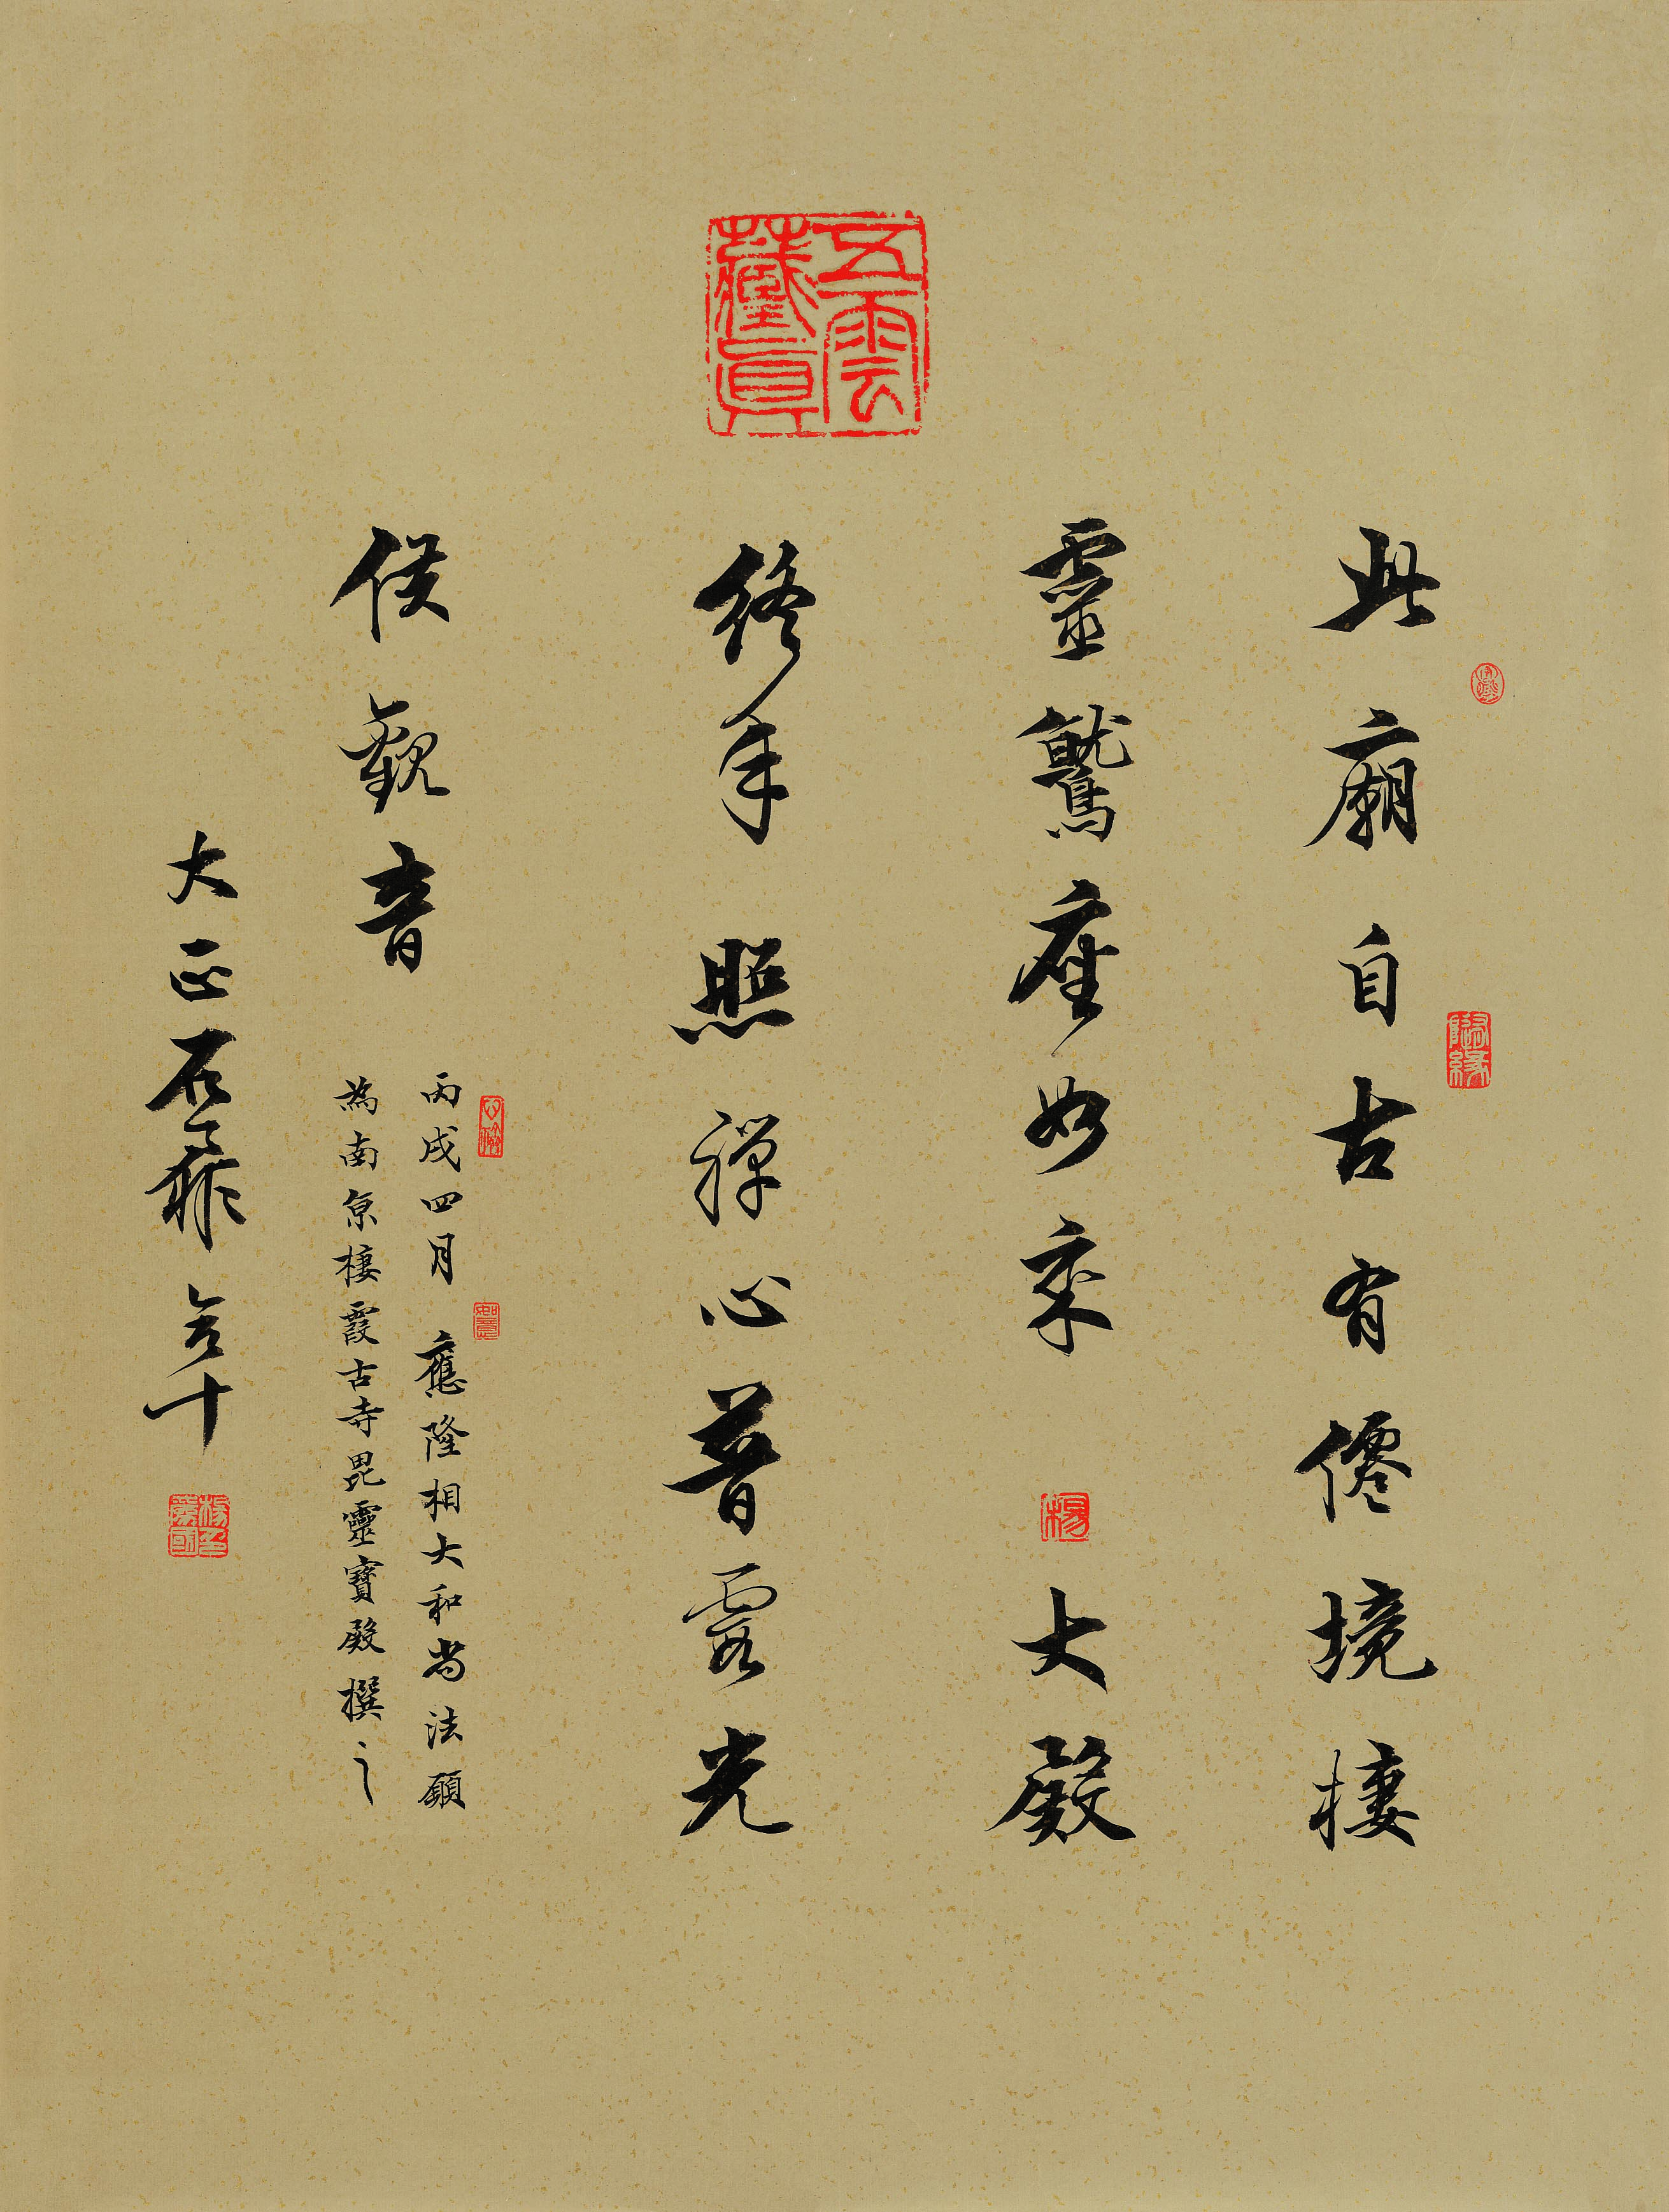 五雲
藏真
此廟自古有僊境棲
隨緣
靈鷲座如來
楊
大殿
終年照禪心普露光
侯觀音
丙戌四月 應隆相大和尚法願
如意
為南京棲霞古寺毘靈寶殿撰之
大正石